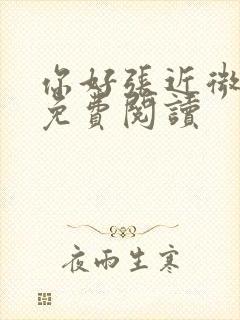 你好張近微
免費閱讀
夜雨生寒